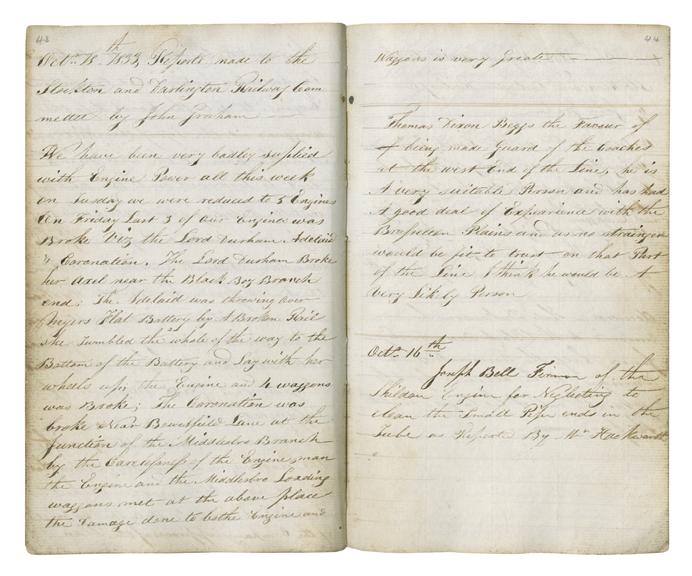 43
Octr. 15th 1833, Reports made to the
Stockton and Darlington Railway Com
mettee by John Graham
We have been very badley suplied
with Engine Power all this week
on Tuesday we were reduced to 5 Engines
On Friday Last 3 of our Engine was
Broke Viz the Lord Durham. Adelaid
& Coronation. The Lord Durham Broke
her Axel near the Black Boy Branch
end; The Adelaid was throwing over
Myers Flat Battery by A Broken Rail
she tumbled the whole of the way to the
Bottom of the Battery and Lay with her
wheels up; the Engine and 4 waggons
was Broke; The Coronation was
broke Near Bowesfield Lane at the
Junction of the Middlesbro Branch
by the Carelessness of the Engine man
the Engine and the Middlesbro Loading
waggons met at the above place
the Damage done to bothe Engine and
44
Waggons is very Greate
Thomas Dixon Beggs the Favour of
being made Guard of the Coaches
at the west End of the Line, he is
A very suitable Person and has had
A good deal of Experiance with the
Brusselton Plains and as no stranger
would be fit to trust on that Part
of the Line I think he would be A
very Likely Person
Octr. 16th
Joseph Bell Fireman of the
Shildon Engine for Neglecting to
clean the Small Pipe ends in the
Tube as Reported By Mr Hackworth